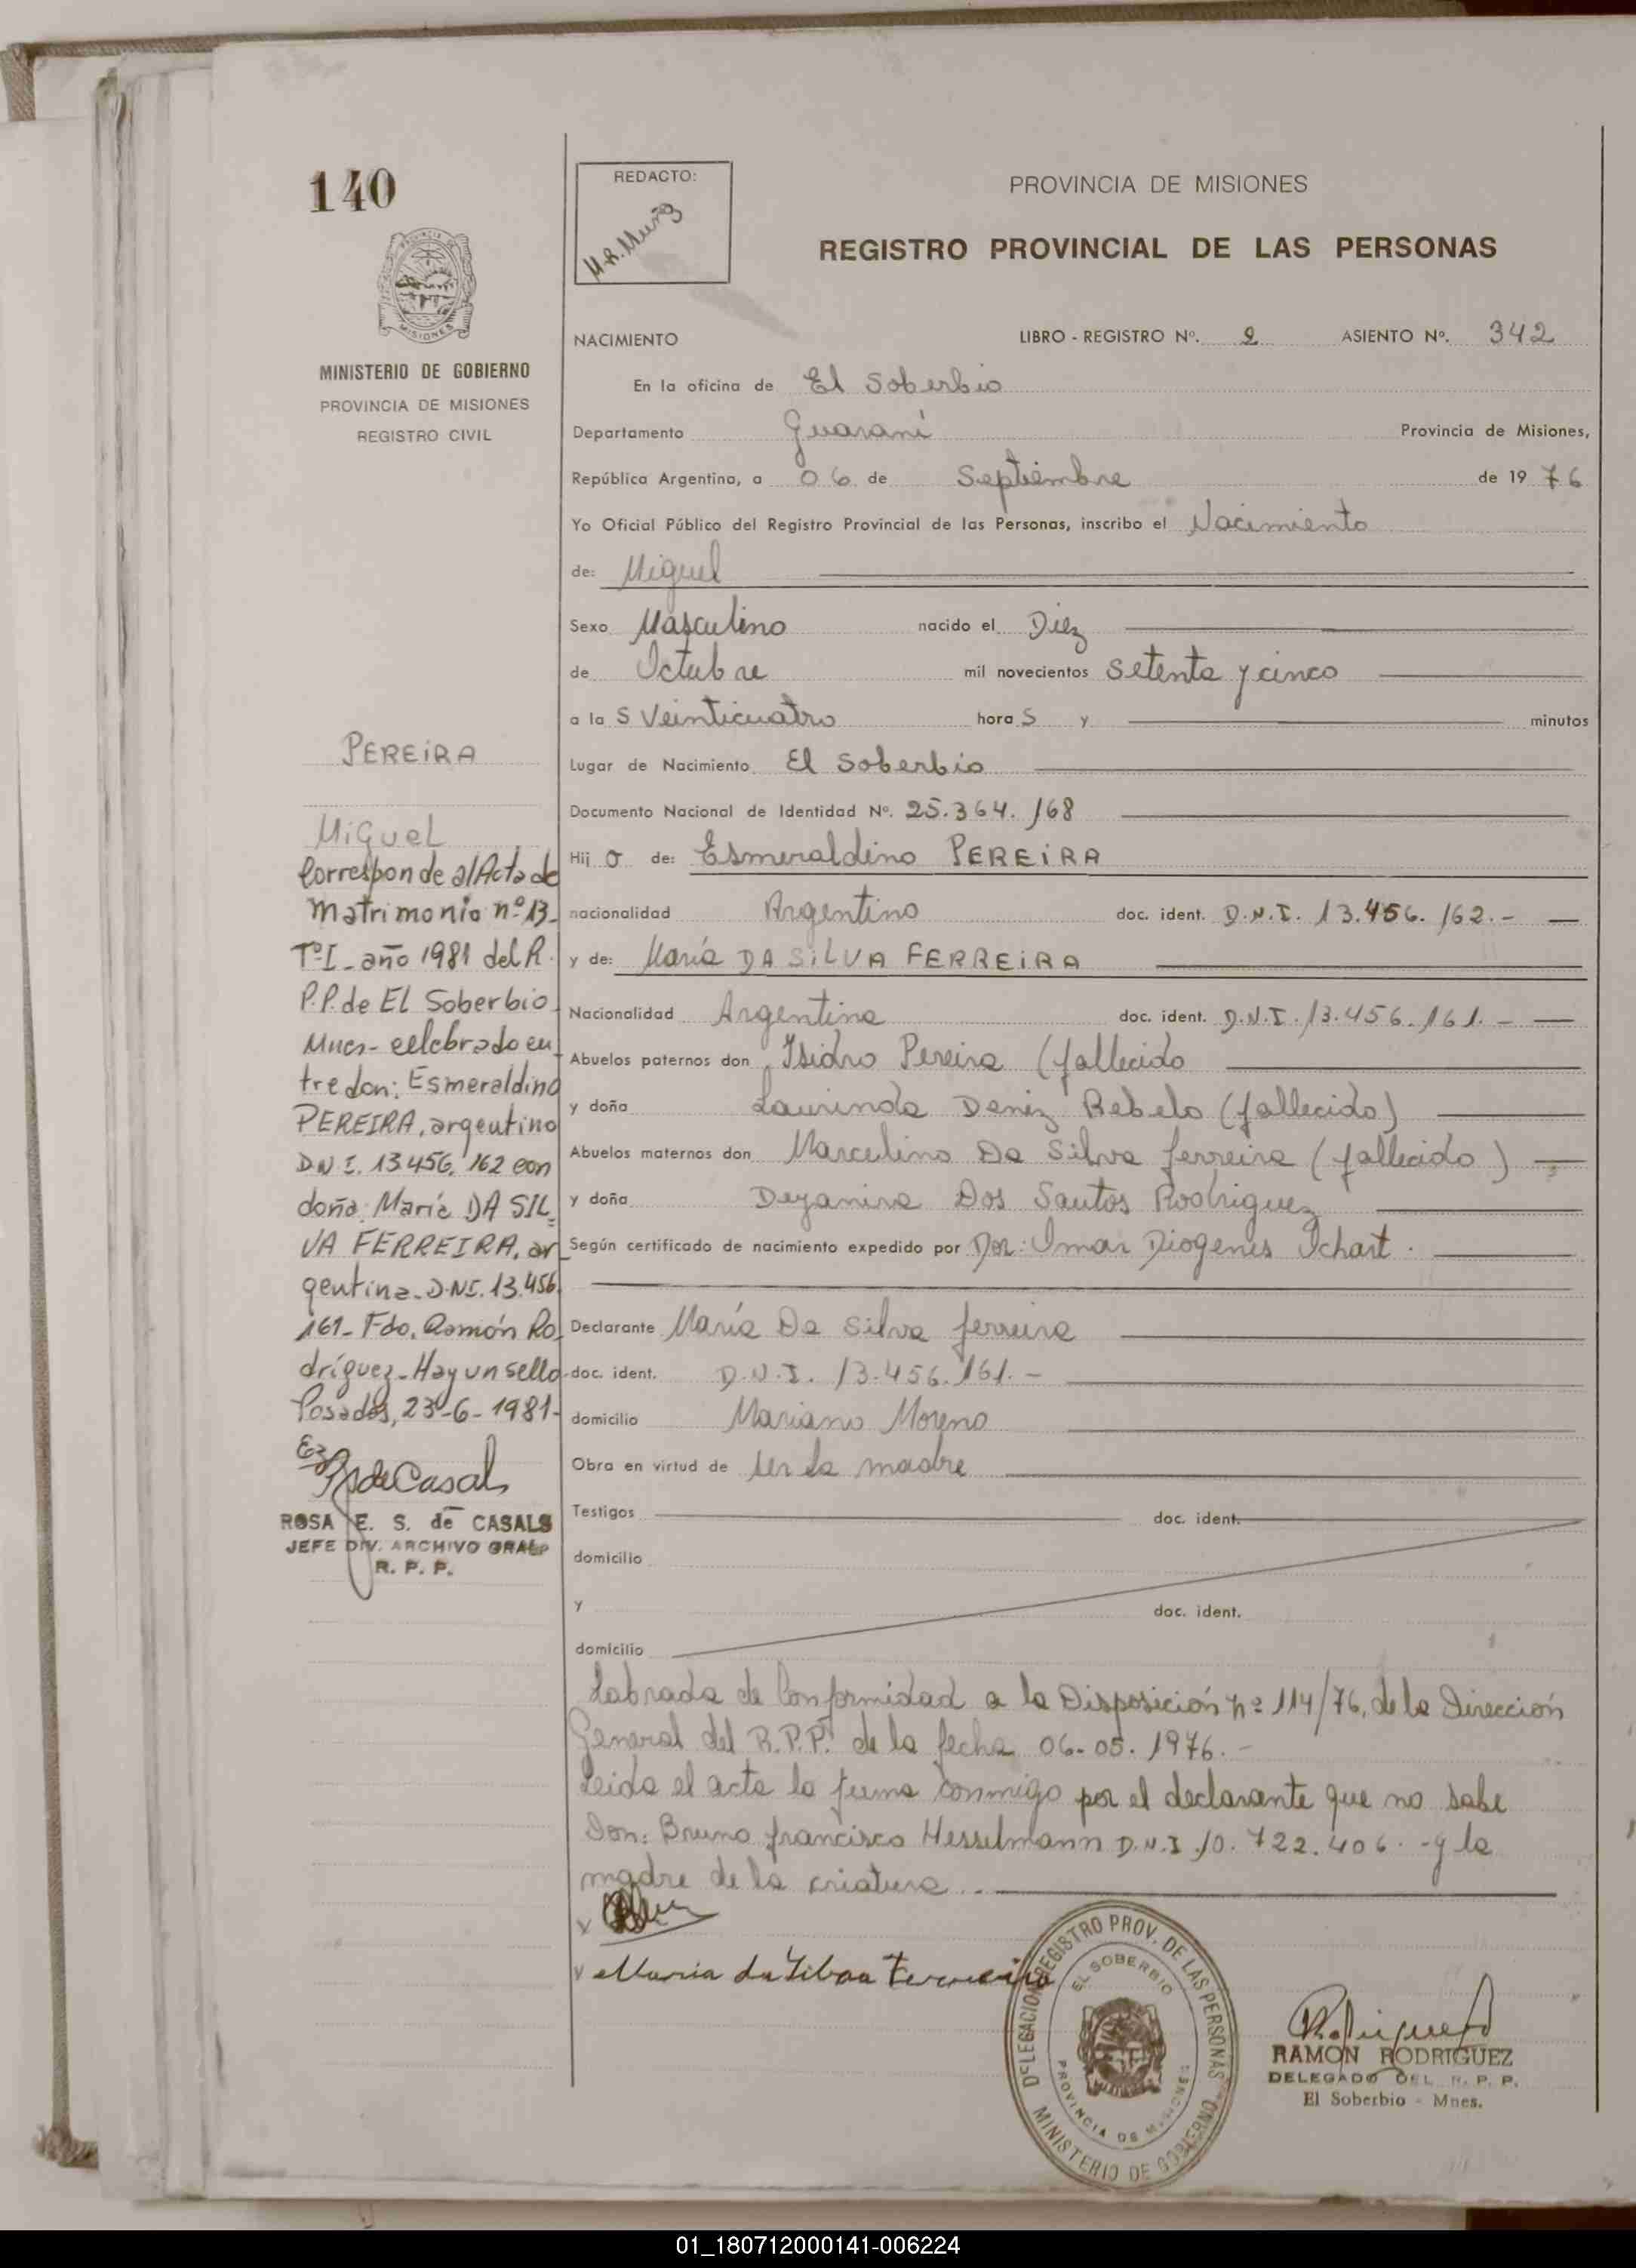 140
PROVINCIA DE
MISIONES
MINISTERIO DE GOBIERNO
PROVINCIA DE MISIONES
REGISTRO CIVIL
PEREIRA
Miguel
Corresponde al Acta de
matrimonio nº 13-
Tº I - año 1981 del R.
P.P. de El Soberbio
Mnes- celebrado en
tre don: Esmeraldino
PEREIRA, argentino
D.N.I. 13.456.162 con
doña: María DA SIL=
VA FERREIRA, ar
gentina - D.N.I. 13.456
161- Fdo. Ramón Ro
dríguez - Hay un sello-
Posadas, 23-6-1981-
de Casals
ROSA E. S. de CASALS
JEFE DIV. ARCHIVO GRAL
R. P. P.
REDACTO:
M.R. Muñoz
PROVINCIA DE MISIONES
REGISTRO PROVINCIAL DE LAS PERSONAS
NACIMIENTO LIBRO - REGISTRO Nº. 2 ASIENTO Nº. 342
En la oficina de El Soberbio
Departamento Guaraní Provincia de Misiones,
República Argentina, a 06 de Septiembre de 1976
Yo Oficial Público del Registro Provincial de las Personas, inscribo el Nacimiento
de: Miguel
Sexo Masculino nacido el Diez
de Octubre mil novecientos Setenta y cinco
a la s Veinticuatro hora s y minutos
Lugar de Nacimiento El Soberbio
Documento Nacional de Identidad Nº. 25.364.168
Hij o de: Esmeraldino PEREIRA
nacionalidad Argentino doc. ident. D.N.I. 13.456.162.-
y de: María DA SILVA FERREIRA
Nacionalidad Argentina doc. ident. D.N.I. 13.456.161.-
Abuelos paternos don Isidro Pereira (fallecido
y doña Laurinda Deniz Rebelo (fallecido)
Abuelos maternos don Marculino Da Silva ferreira (fallecido)
y doña Deyanira Dos Santos Rodriguez
Según certificado de nacimiento expedido por Dor: Omar Diogenes Ichart.
Declarante María Da Silva ferreira
doc. ident. D.N.I. 13.456.161.-
domicilio Mariano Moreno
Obra en virtud de ser la madre
Testigos doc. ident.
domicilio
y doc. ident.
domicilio
Labrada de Conformidad a la Disposición nº 114/76, de la Dirección
General del R.P.P. de la fecha 06-05.1976.-
Leida el acta la firma conmigo por el declarante que no sabe
Don: Bruno francisco Hesselmann D.N.I. 10.722.406.- y la
madre de la criatura.-
Maria da Silva Ferreira
DELEGACION REGISTRO PROV. DE LAS PERSONAS
EL SOBERBIO
PROVINCIA DE MISIONES
MINISTERIO DE GOBIERNO
Rodriguez
RAMON RODRIGUEZ
DELEGADO DEL R. P. P.
El Soberbio - Mnes.
01_180712000141-006224